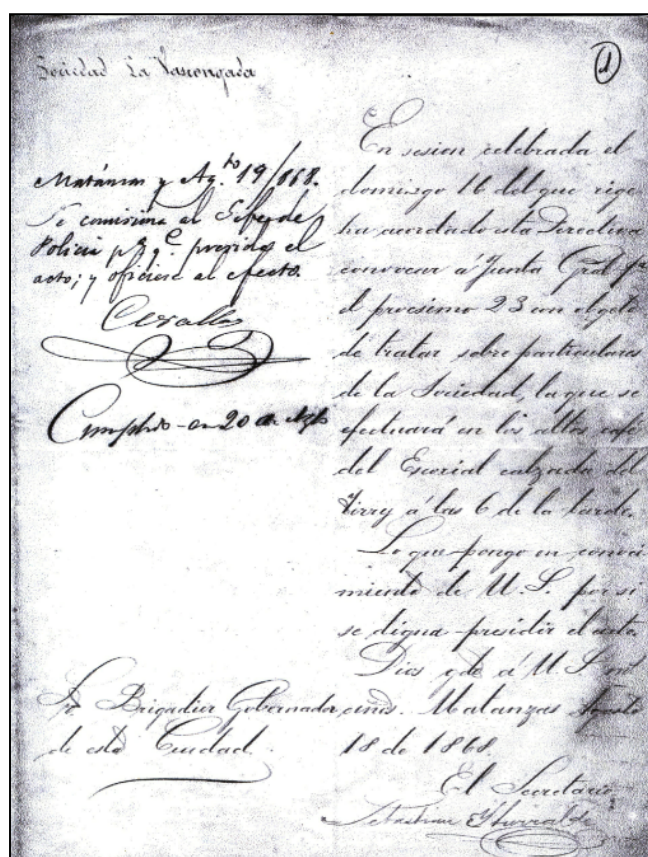 Sociedad La Vascongada
1
Matánzas y Ag.to 19/868.
Se comisiona al Gefe de
Policia pª qe. presida el
acto; y oficiese al efecto.
Cevallos
Cumplido en 20 de Agto
En sesion celebrada el
domingo 16 del que rige
ha acordado esta Directiva
convocar á Junta Gral pª
el procsimo 23 con objeto
de tratar sobre particulares
de la Sociedad, la que se
efectuará en los altos café
del Escorial calzada del
Tirry á las 6 de la tarde.
Lo que pongo en conoci
miento de U.S. por si
se digna presidir el acto.
Dios gde á U.S. ms
años. Matanzas Agosto
18 de 1868.
El Secretario
Sebastian Yturralde
Sr. Brigadier Gobernador
de esta Ciudad.